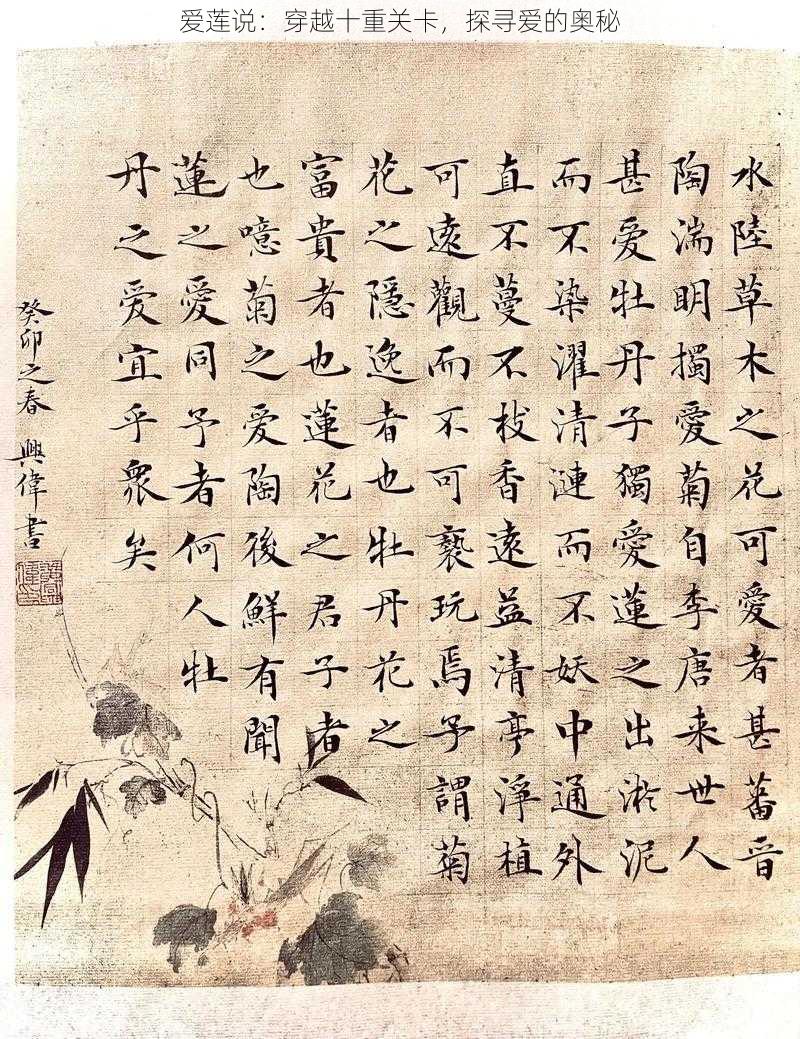 爱莲说：穿越十重关卡，探寻爱的奥秘
水陸草木之花可愛者甚蕃晉
陶淵明獨愛菊自李唐来世人
甚爱牡丹予獨愛蓮之出淤泥
而不染濯清漣而不妖中通外
直不蔓不枝香遠益清亭淨植
可遠觀而不可褻玩焉予謂菊
花之隱逸者也牡丹花之
富貴者也蓮花之君子者
也噫菊之爱陶後鮮有聞
蓮之愛同予者何人牡
丹之爱宜乎衆矣
癸卯之春 興偉書